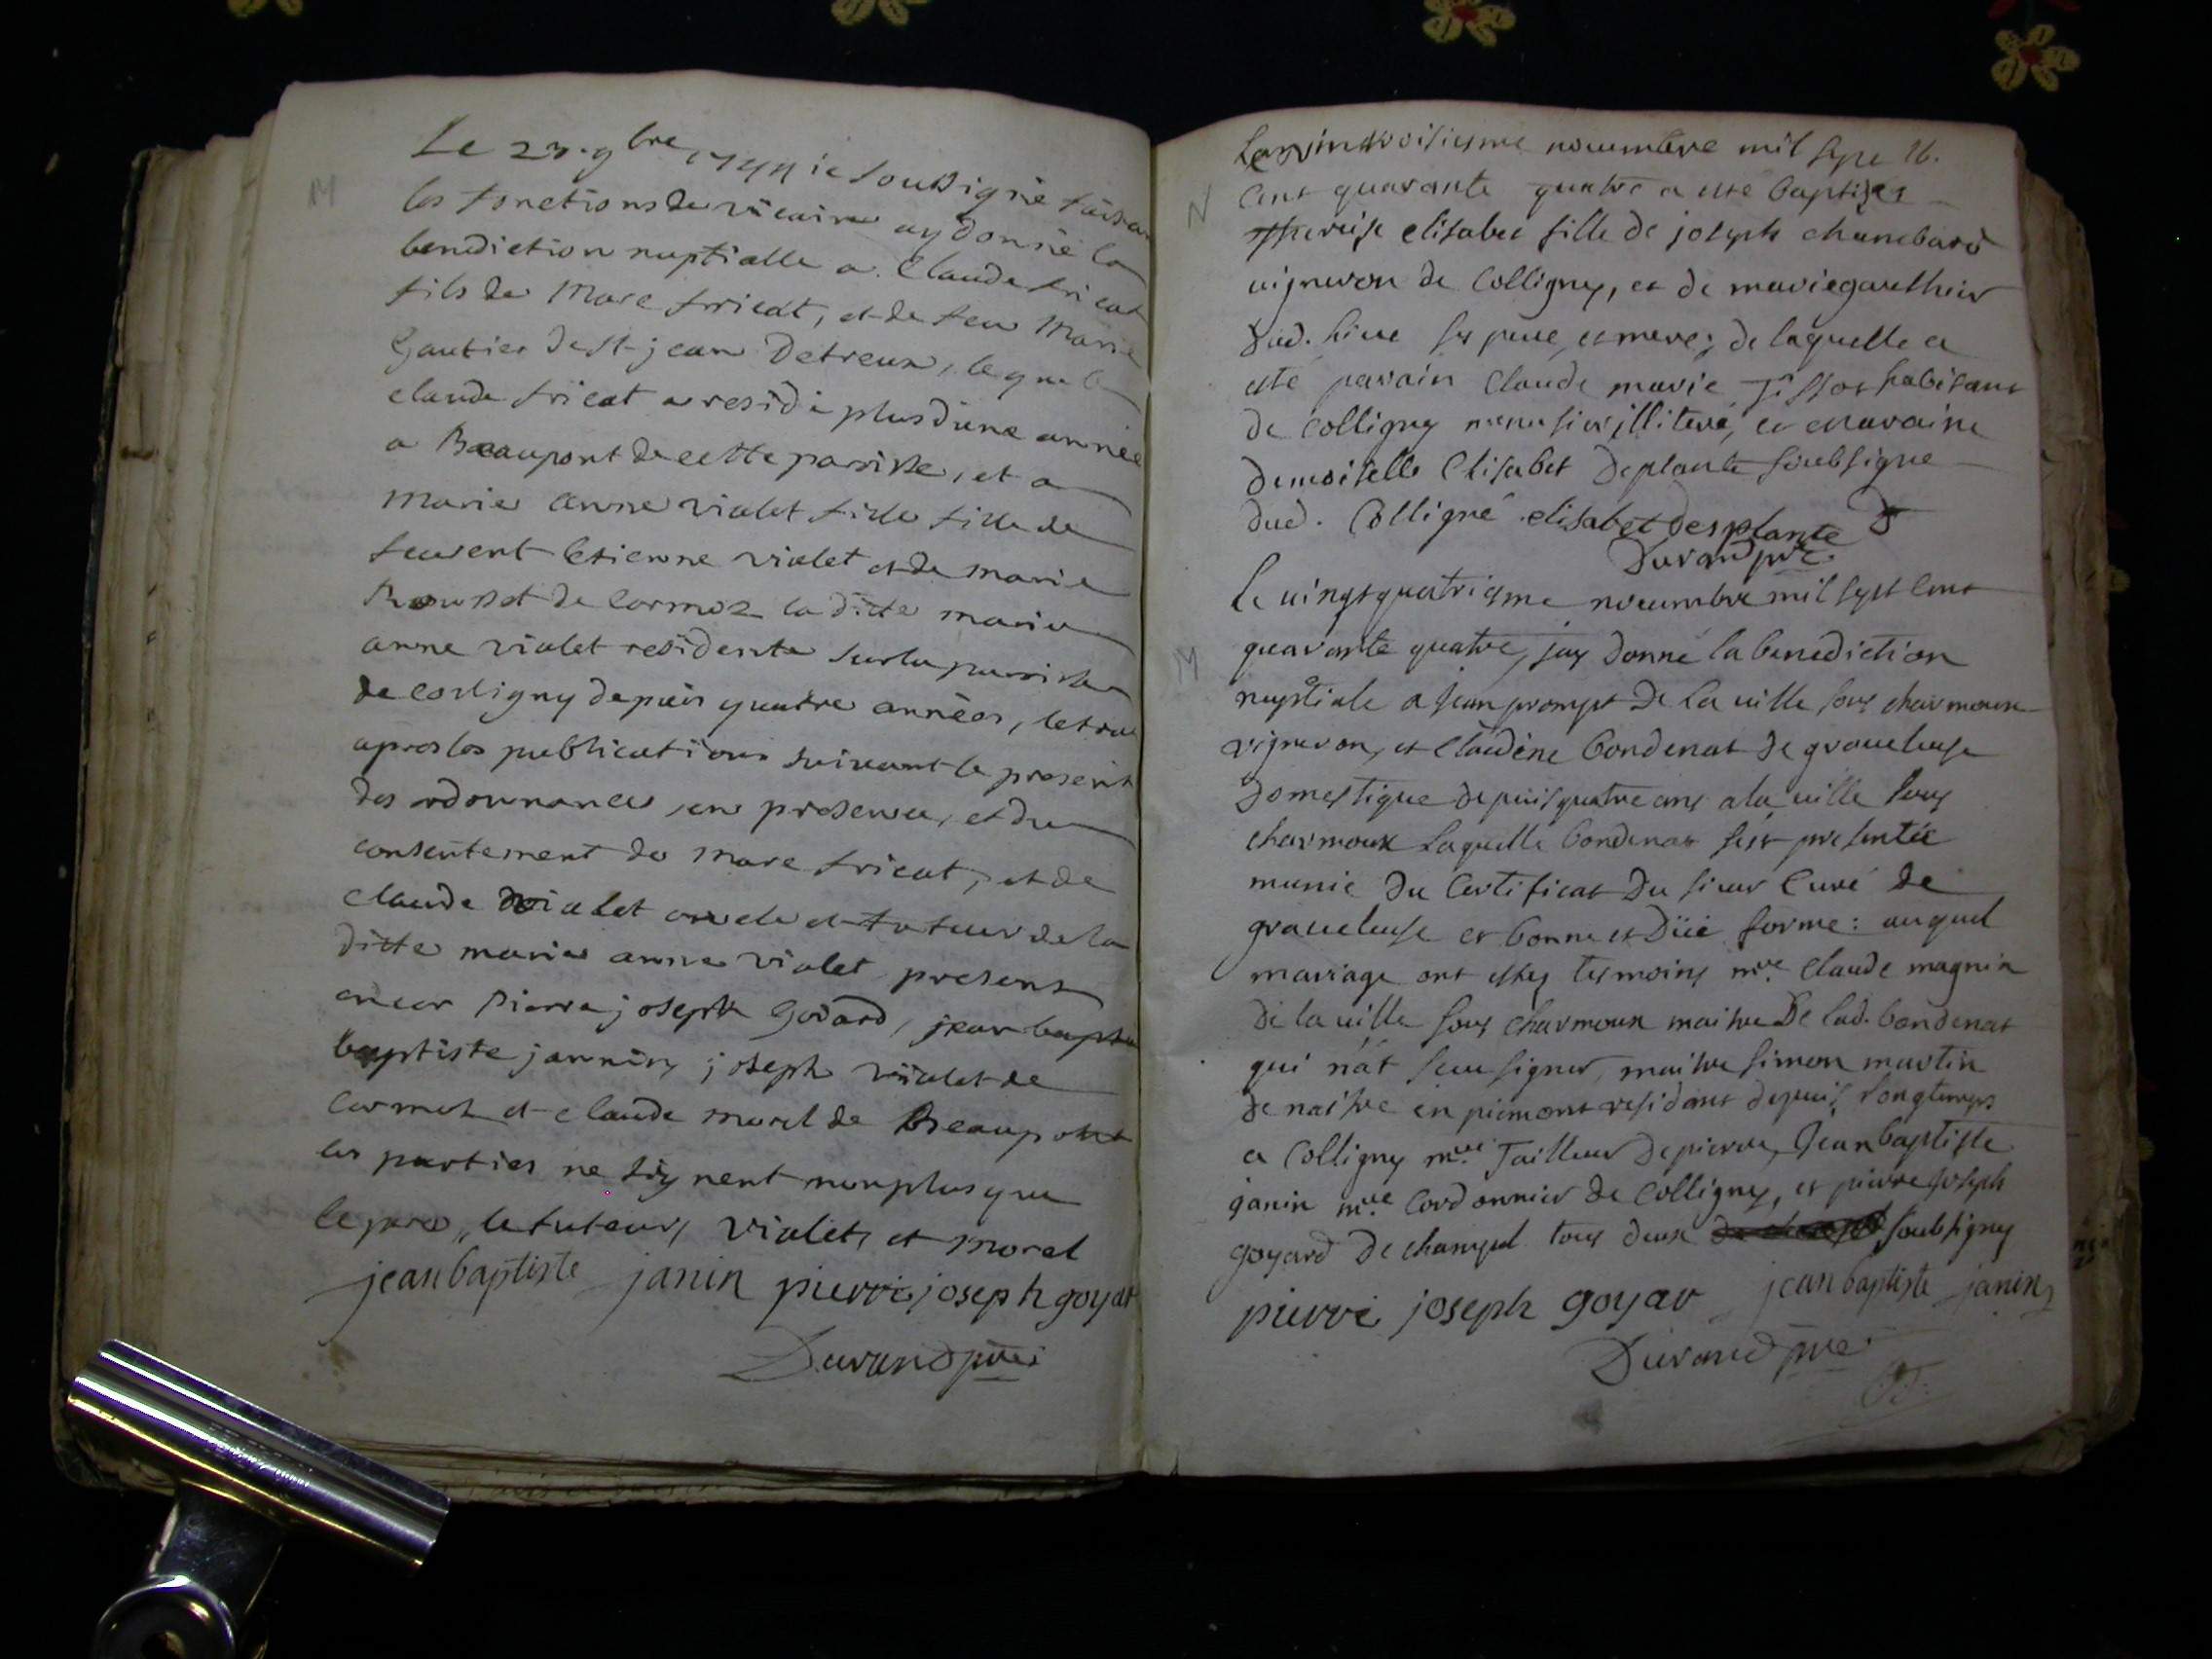 M
Le 23. 9bre 1744 ie soussigné faisan
les fonctions de vicaire ay donné la
benediction nuptialle a Claude fricat
fils de Marc fricat, et de feu Marie
Gautier de St jean Detreux, lequel
claude fricat a residé plus dune année
a Beaupont de cette paroisse, et a
Marie anne violet fille fille de
feu Etienne violet et de marie
Rousset de Cormoz la ditte marie
anne violet residente sur la paroisse
de Colligny depuis quatre années, le tout
apres les publications suivant le present
des ordonnances en presence, et du
consentement de marc fricat, et de
claude violet oncle et tuteur de la
ditte marie anne violet present
encor Pierre joseph Godard, jean bapti
baptiste jannin, joseph violet de
Cormoz et claude morel de Beaupont
les parties ne signent non plus que
le pere, le tuteur, violet, et morel
jean baptiste janin pierre joseph goyar
Durand ptre
Le vintroisiesme nouembre mil sept 16.
N
Cent quarante quatre a esté baptisée
therese elisabet fille de joseph chambard
uigneron de Colligny, et de marie gauthier
dud. lieu ses pere et mere; de laquelle a
esté parain Claude marie Tissot habitant
de Colligny menusier illiteré, et maraine
demoiselle Elisabet deplante soubsigne
dud. Colligné elisabet desplante
Durand ptre.
Le uingtquatriesme nouembre mil sept Cent
M
quarante quatre, jay donné la benediction
nuptiale a jean prompt de la uille sous charmoux
vigneron, et Claudine Bondenat de graueleuse
domestique depuis quatre ans a la uille sous
charmoux laquelle bondenat sest presentée
munie du Certificat du sieur Curé de
graueleuse et bonne et düe forme: auquel
mariage ont estes tesmoins mre Claude magnin
de la uille sous charmoux maitre de lad. bondenat
qui n'at sceu signer, maitre simon martin
de naitre en piemont residant depuis longtemps
a Colligny mre Tailleur de pierre, Jean baptiste
janin mre Cordonnier de Colligny, et pierre joseph
goyard de champel tous deux soubsignes
pierre joseph goyar jean baptiste janin
Durand ptre